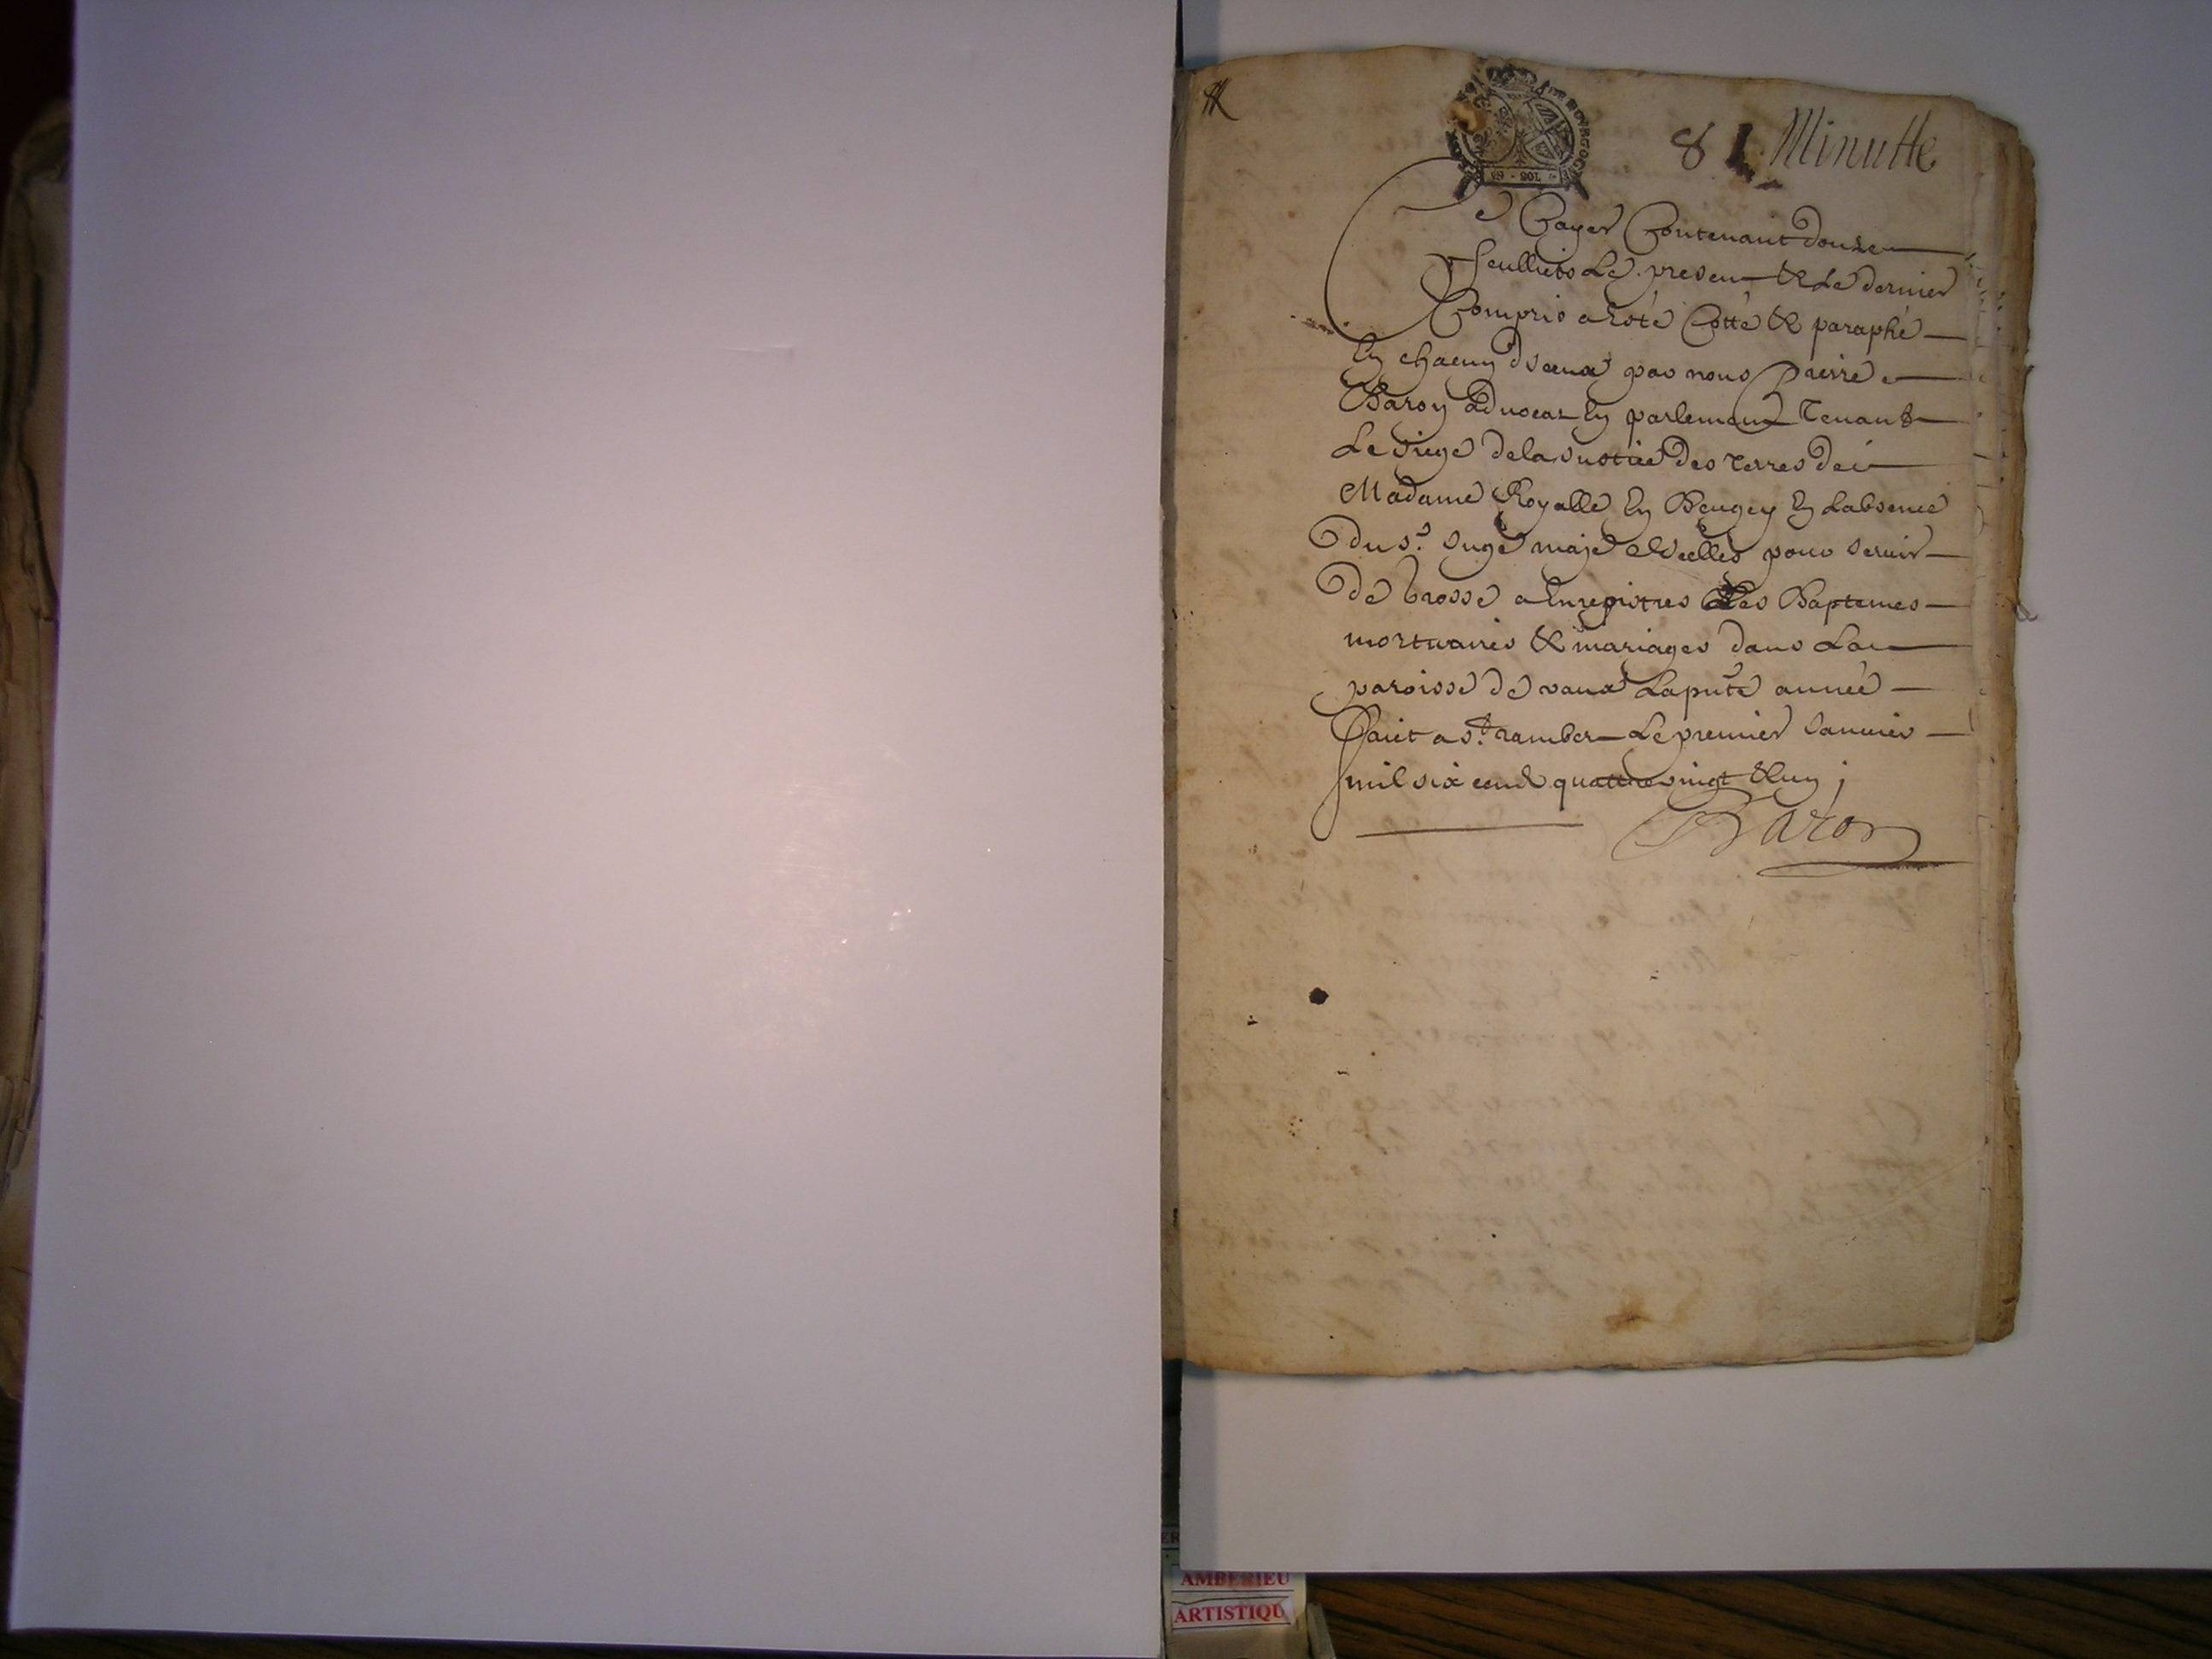 81 Minutte
Ce Cayer Contenant douze
feulliets Le present & Le dernier
Compris a esté Cotté & paraphé
En chacun d'iceux par nous Pierre
Baron advocat En parlement tenant
Le siege de la Justice des terres de
Madame Royalle En Beugey En Labsence
du Sr. Juge maje d'Icelles pour servir
de Grosse a Enregistrer Les Baptemes
mortuaires & mariages dans La
paroisse de vaux La pnte année
Faict a St. rambert Le premier Janvier
mil six cend quattre vingt & un ;
Baron
AMBERIEU
ARTISTIQU